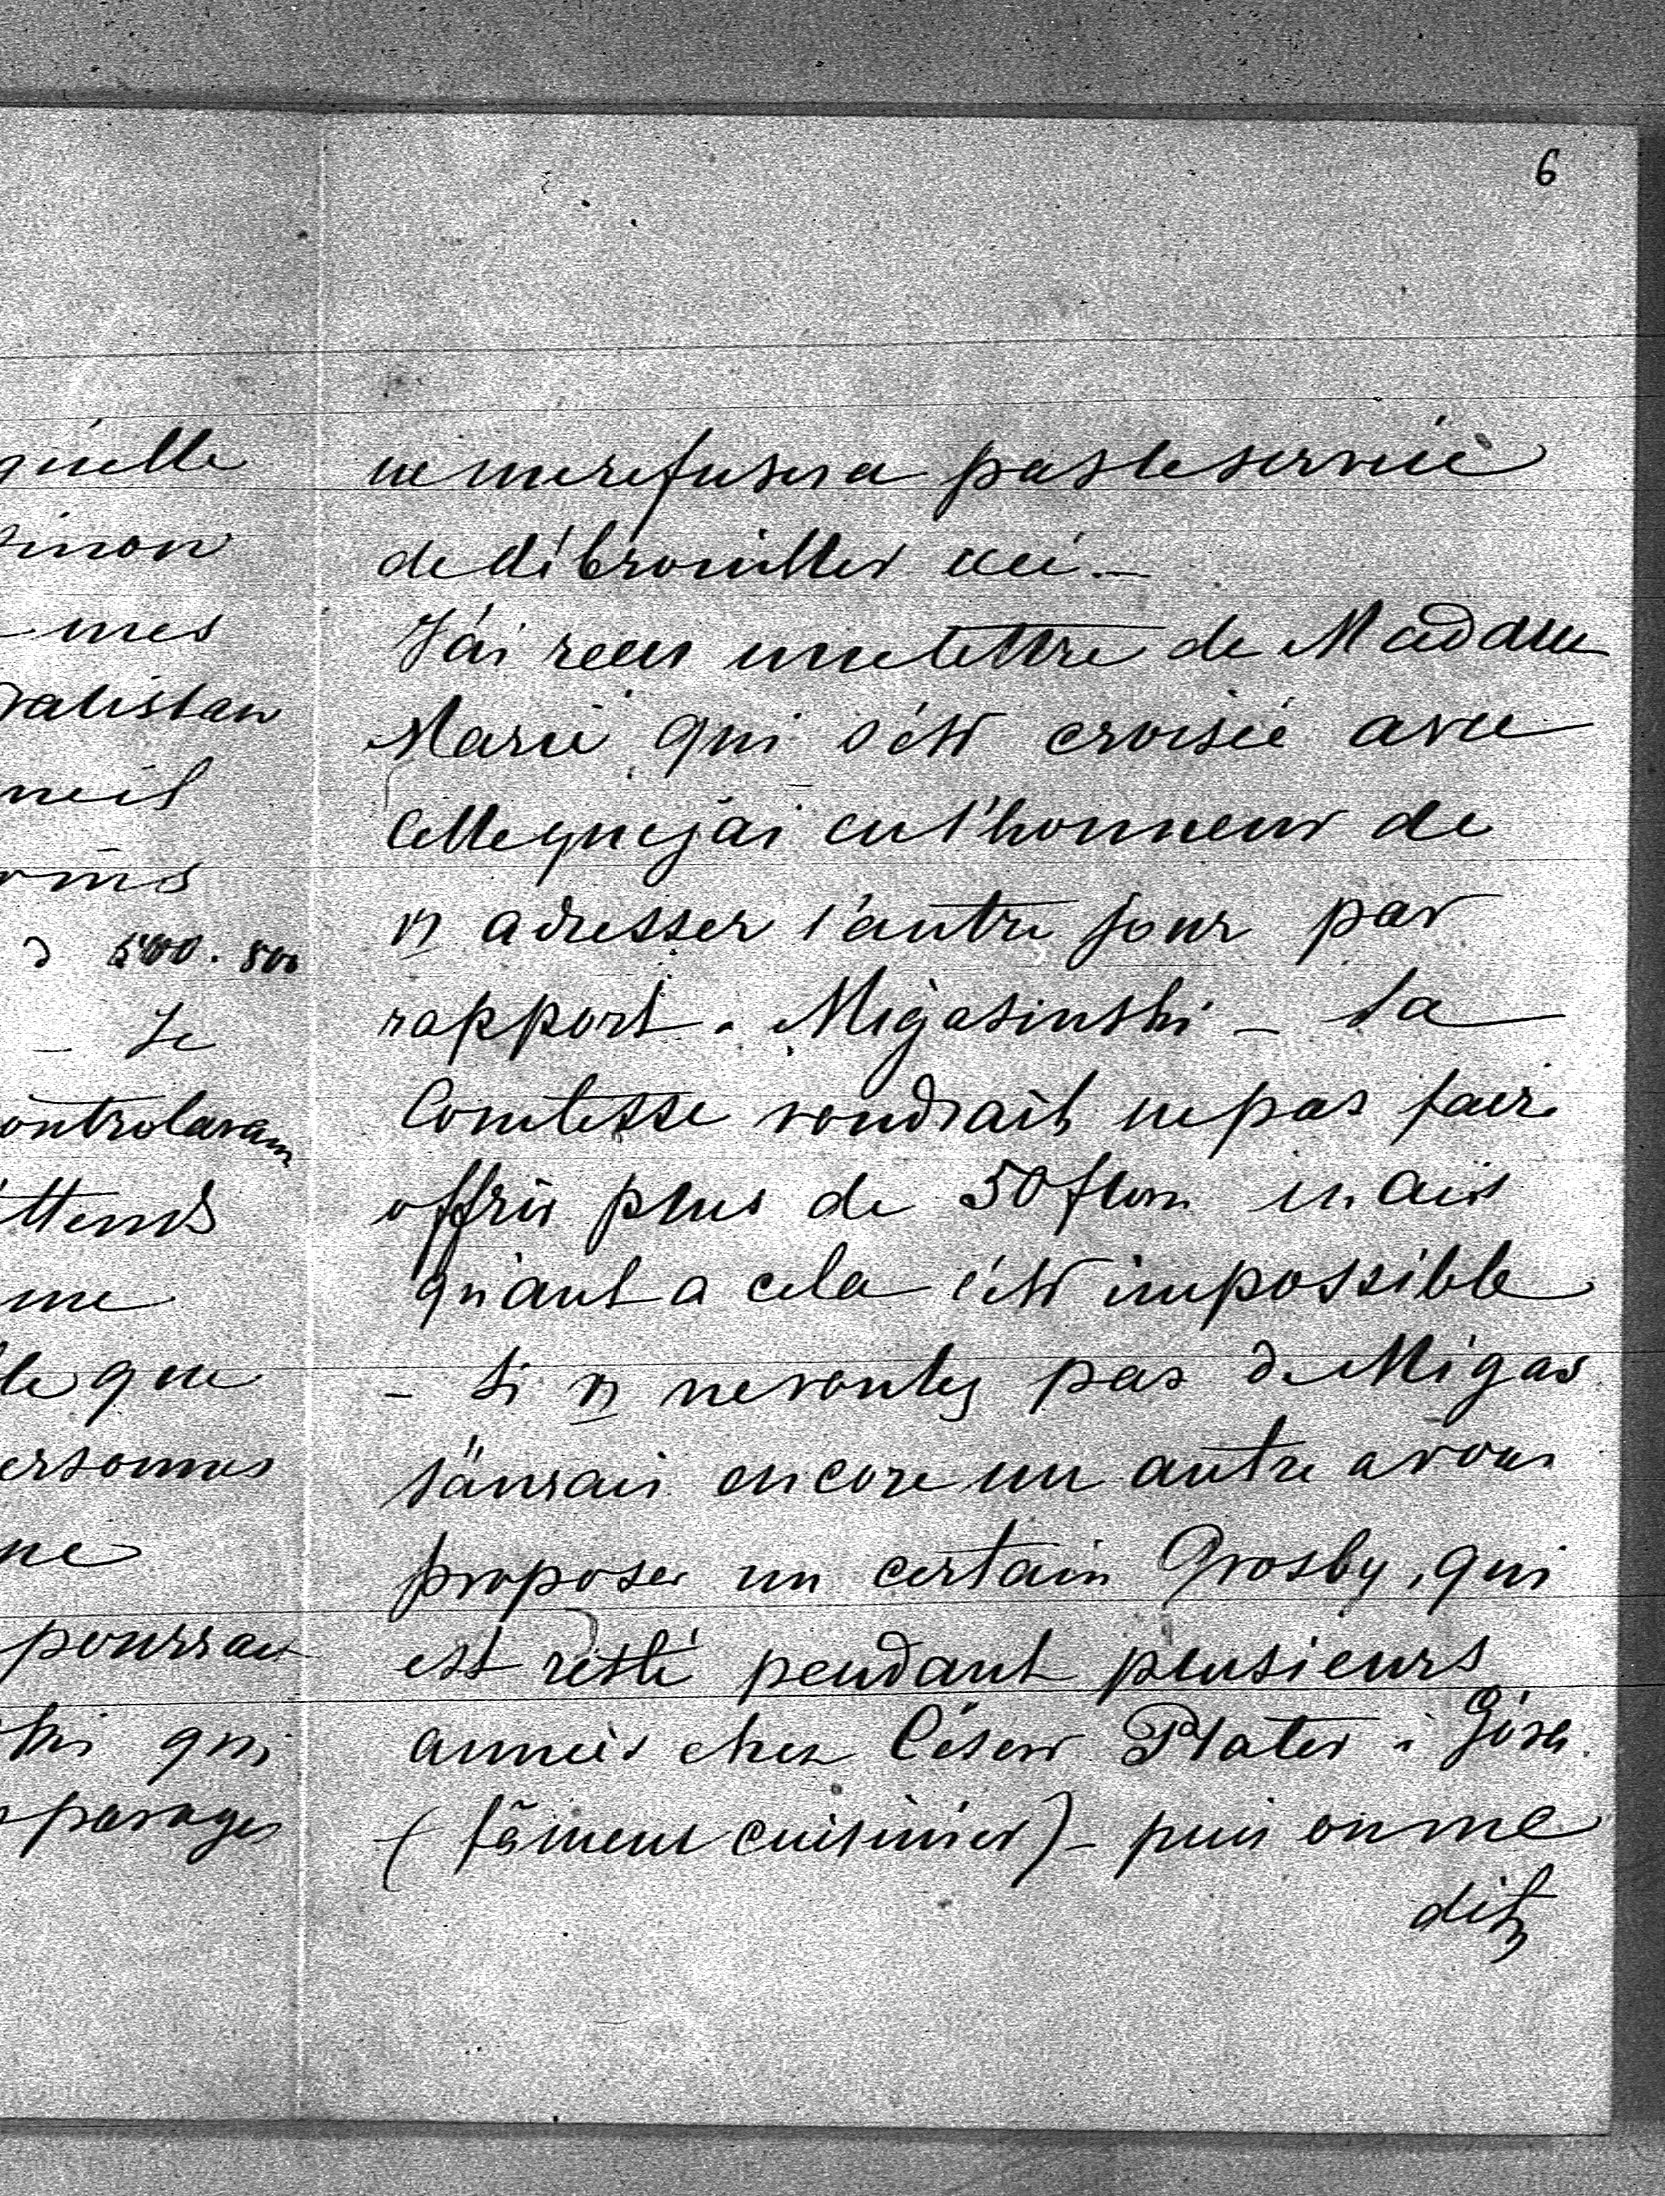 6
qu'elle
sinon
mes
500. 500
Je
me
que
personnes
ne
pourrait
qui
parages
ne me refusera pas le service
de débrouiller ceci. —
J'ai reçu une lettre de Madame
Marie qui s'est croisée avec
celle que j'ai eu l'honneur de
v adresser l'autre jour par
rapport. Migasinski — la
Comtesse voudrait ne pas faire
offrir plus de 50 flor. mais
quant a cela c'est impossible
— Si v ne voulez pas de Migas.
j'aurais encore un autre a vous
proposer un certain Grosby, qui
est resté pendant plusieurs
années chez César Plater à
(fameux cuisinier) — puis on me
dit